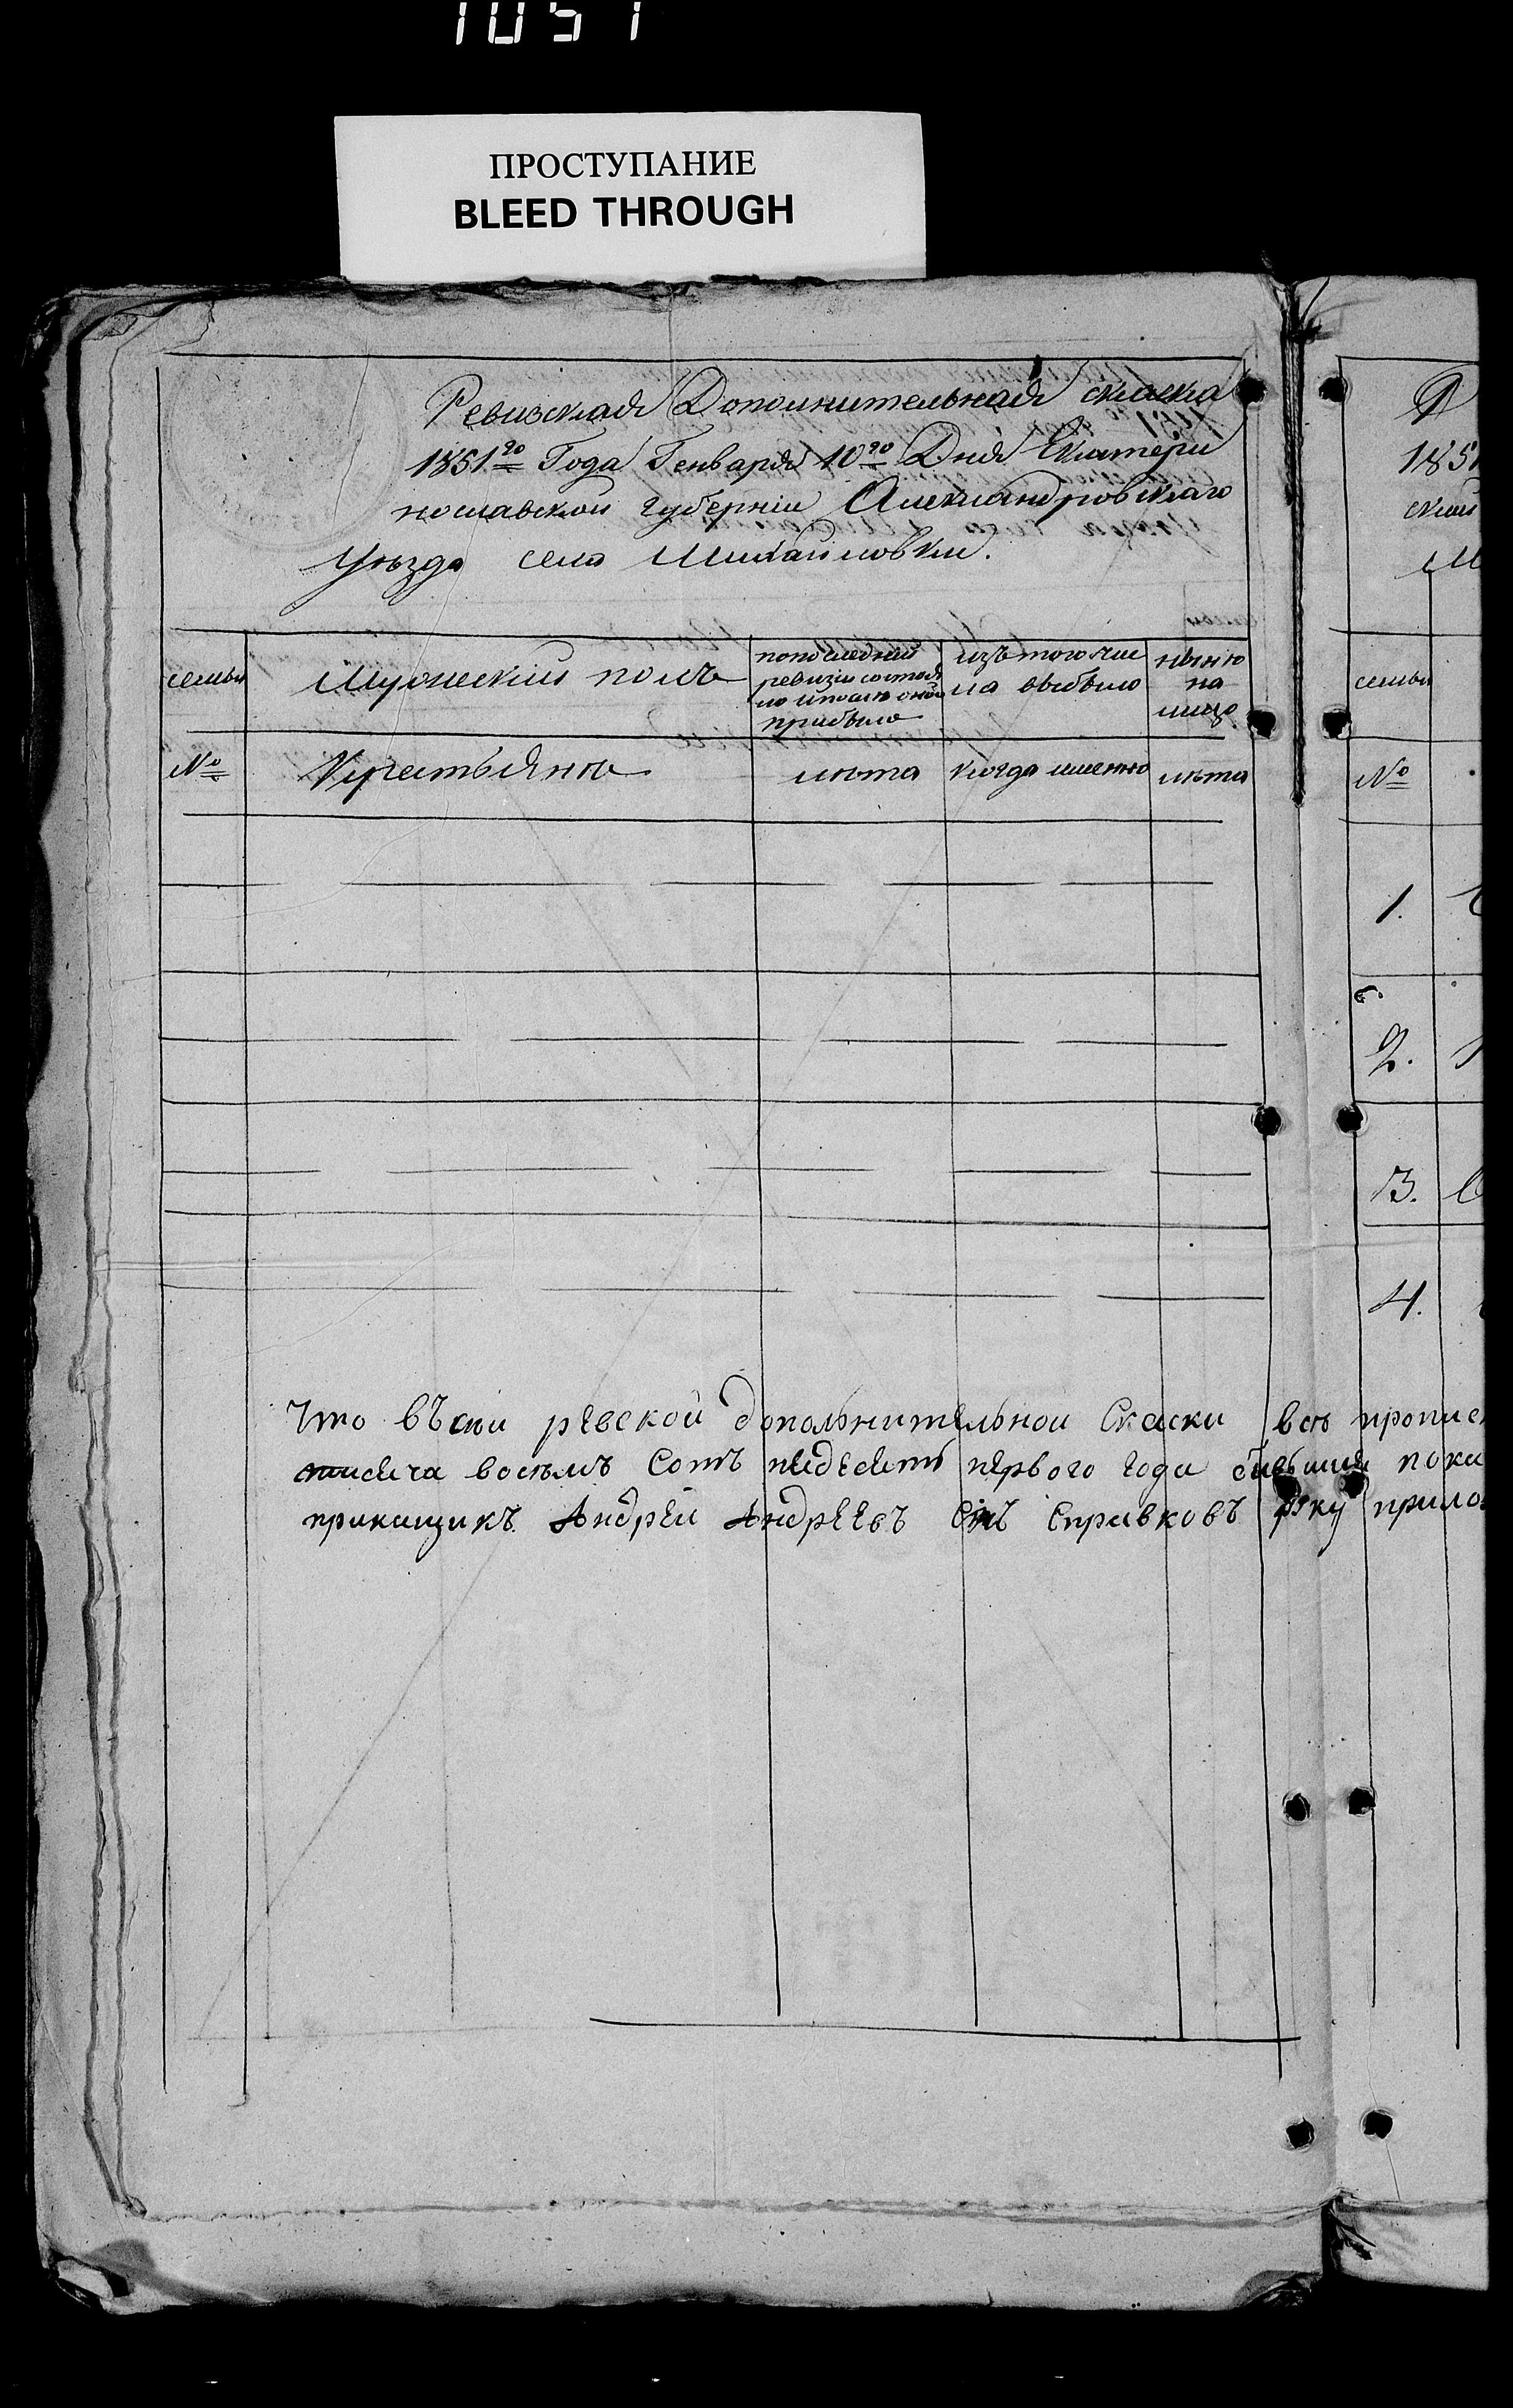 1051
ПРОСТУПАНИЕ
BLEED THROUGH
Ревизская Дополнительная сказка
1851го Года Генваря 10го Дня Екатери
нославской губернiи Александровскаго
уѣзда села Михайловки.
семьи
Мужескiй полъ
по последней
ревизiи состоя
ло и после оной
прибыло
изъ того чис
ла выбыло
нынѣ
на
лицо
№
Крестьяне
лѣта
когда именно
лѣта
Что въ сей ревской допольнительной Скаски всѣ пропис
тисеча восъмъ Сотъ педесятъ первого года
прикащикъ Андрей Андреевъ Снъ Справковъ руку прило
1851
ский
М
семьи
№
1.
2.
3.
4.